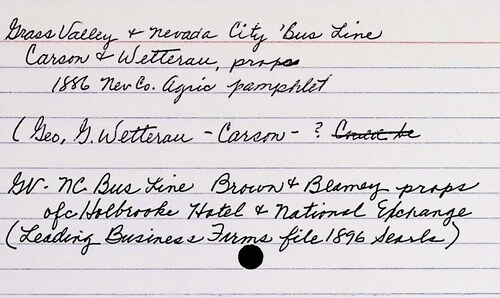 Grass Valley & Nevada City 'Bus Line
Carson & Wetterau, props
1886 Nev Co. Agric pamphlet
(Geo, G. Wetterau - Carson - ? Could be
GV - NC Bus Line Brown & Blamey props
ofc Holbrooke Hotel & National Exchange
(Leading Business Firms file 1896 Searls)